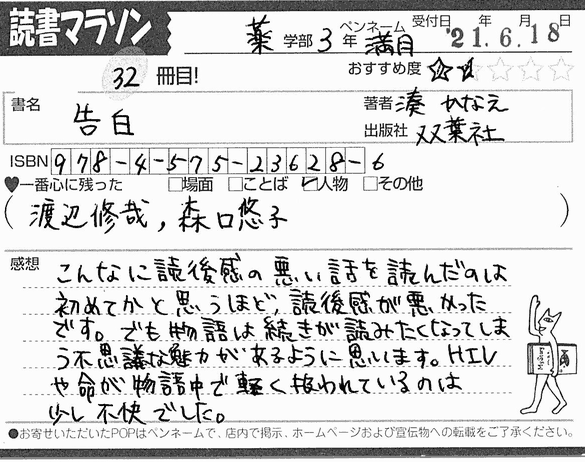 読書マラソン
薬 学部 3 年 ペンネーム 満月 受付日 '21年 6月 18日
32 冊目!
おすすめ度 ★★☆☆☆
書名 告白
著者 湊 かなえ
出版社 双葉社
ISBN 978-4-575-23628-6
♥一番心に残った □場面 □ことば ☑人物 □その他
(渡辺修哉, 森口悠子)
感想
こんなに読後感の悪い話を読んだのは
初めてかと思うほど, 読後感が悪かった
です。でも物語は続きが読みたくなってしま
う不思議な魅力があるように思います。HIV
や命が物語中で軽く扱われているのは
少し不快でした。
●お寄せいただいたPOPはペンネームで、店内で掲示、ホームページおよび宣伝物への転載をご了承ください。